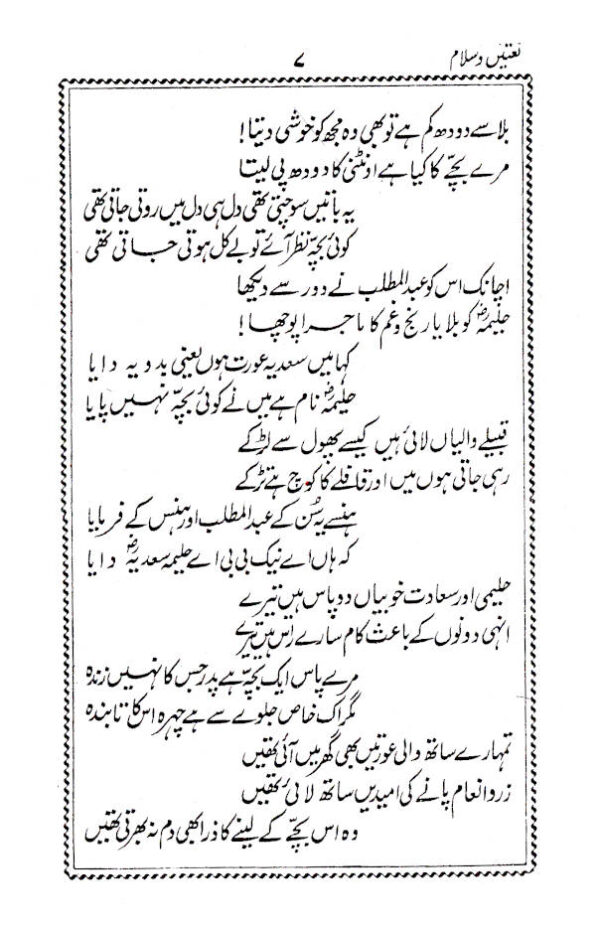 نعتیں و سلام
۷
بلا سے دودھ کم ہے تو بھی وہ مجھ کو خوشی دیتا!
مرے بچّے کا کیا ہے اونٹنی کا دودھ پی لیتا
یہ باتیں سوچتی تھی دل ہی دل میں روتی جاتی تھی
کوئی بچّہ نظر آئے تو بے کل ہوتی جاتی تھی
اچانک اس کو عبدالمطلب نے دور سے دیکھا
حلیمہؓ کو بلایا رنج و غم کا ماجرا پوچھا!
کہا میں سعدیہ عورت ہوں یعنی بدویہ دایا
حلیمہؓ نام ہے میں نے کوئی بچّہ نہیں پایا
قبیلے والیاں لائی ہیں کیسے پھول سے لڑکے
رہی جاتی ہوں میں اور قافلے کا کوچ ہے تڑکے
ہنسے یہ سُن کے عبدالمطلب اور ہنس کے فرمایا
کہ ہاں اے نیک بی بی اے حلیمہ سعدیہؓ دایا
حلیمی اور سعادت خوبیاں دو پاس ہیں تیرے
انہی دونوں کے باعث کام سارے راس ہیں تیرے
مرے پاس ایک بچّہ ہے پدر جس کا نہیں زندہ
مگر اک خاص جلوے سے ہے چہرہ اس کا تابندہ
تمہارے ساتھ والی عورتیں بھی گھر میں آئی تھیں
زر و انعام پانے کی امیدیں ساتھ لائی تھیں
وہ اس بچّے کے لینے کا ذرا بھی دم نہ بھرتی تھیں